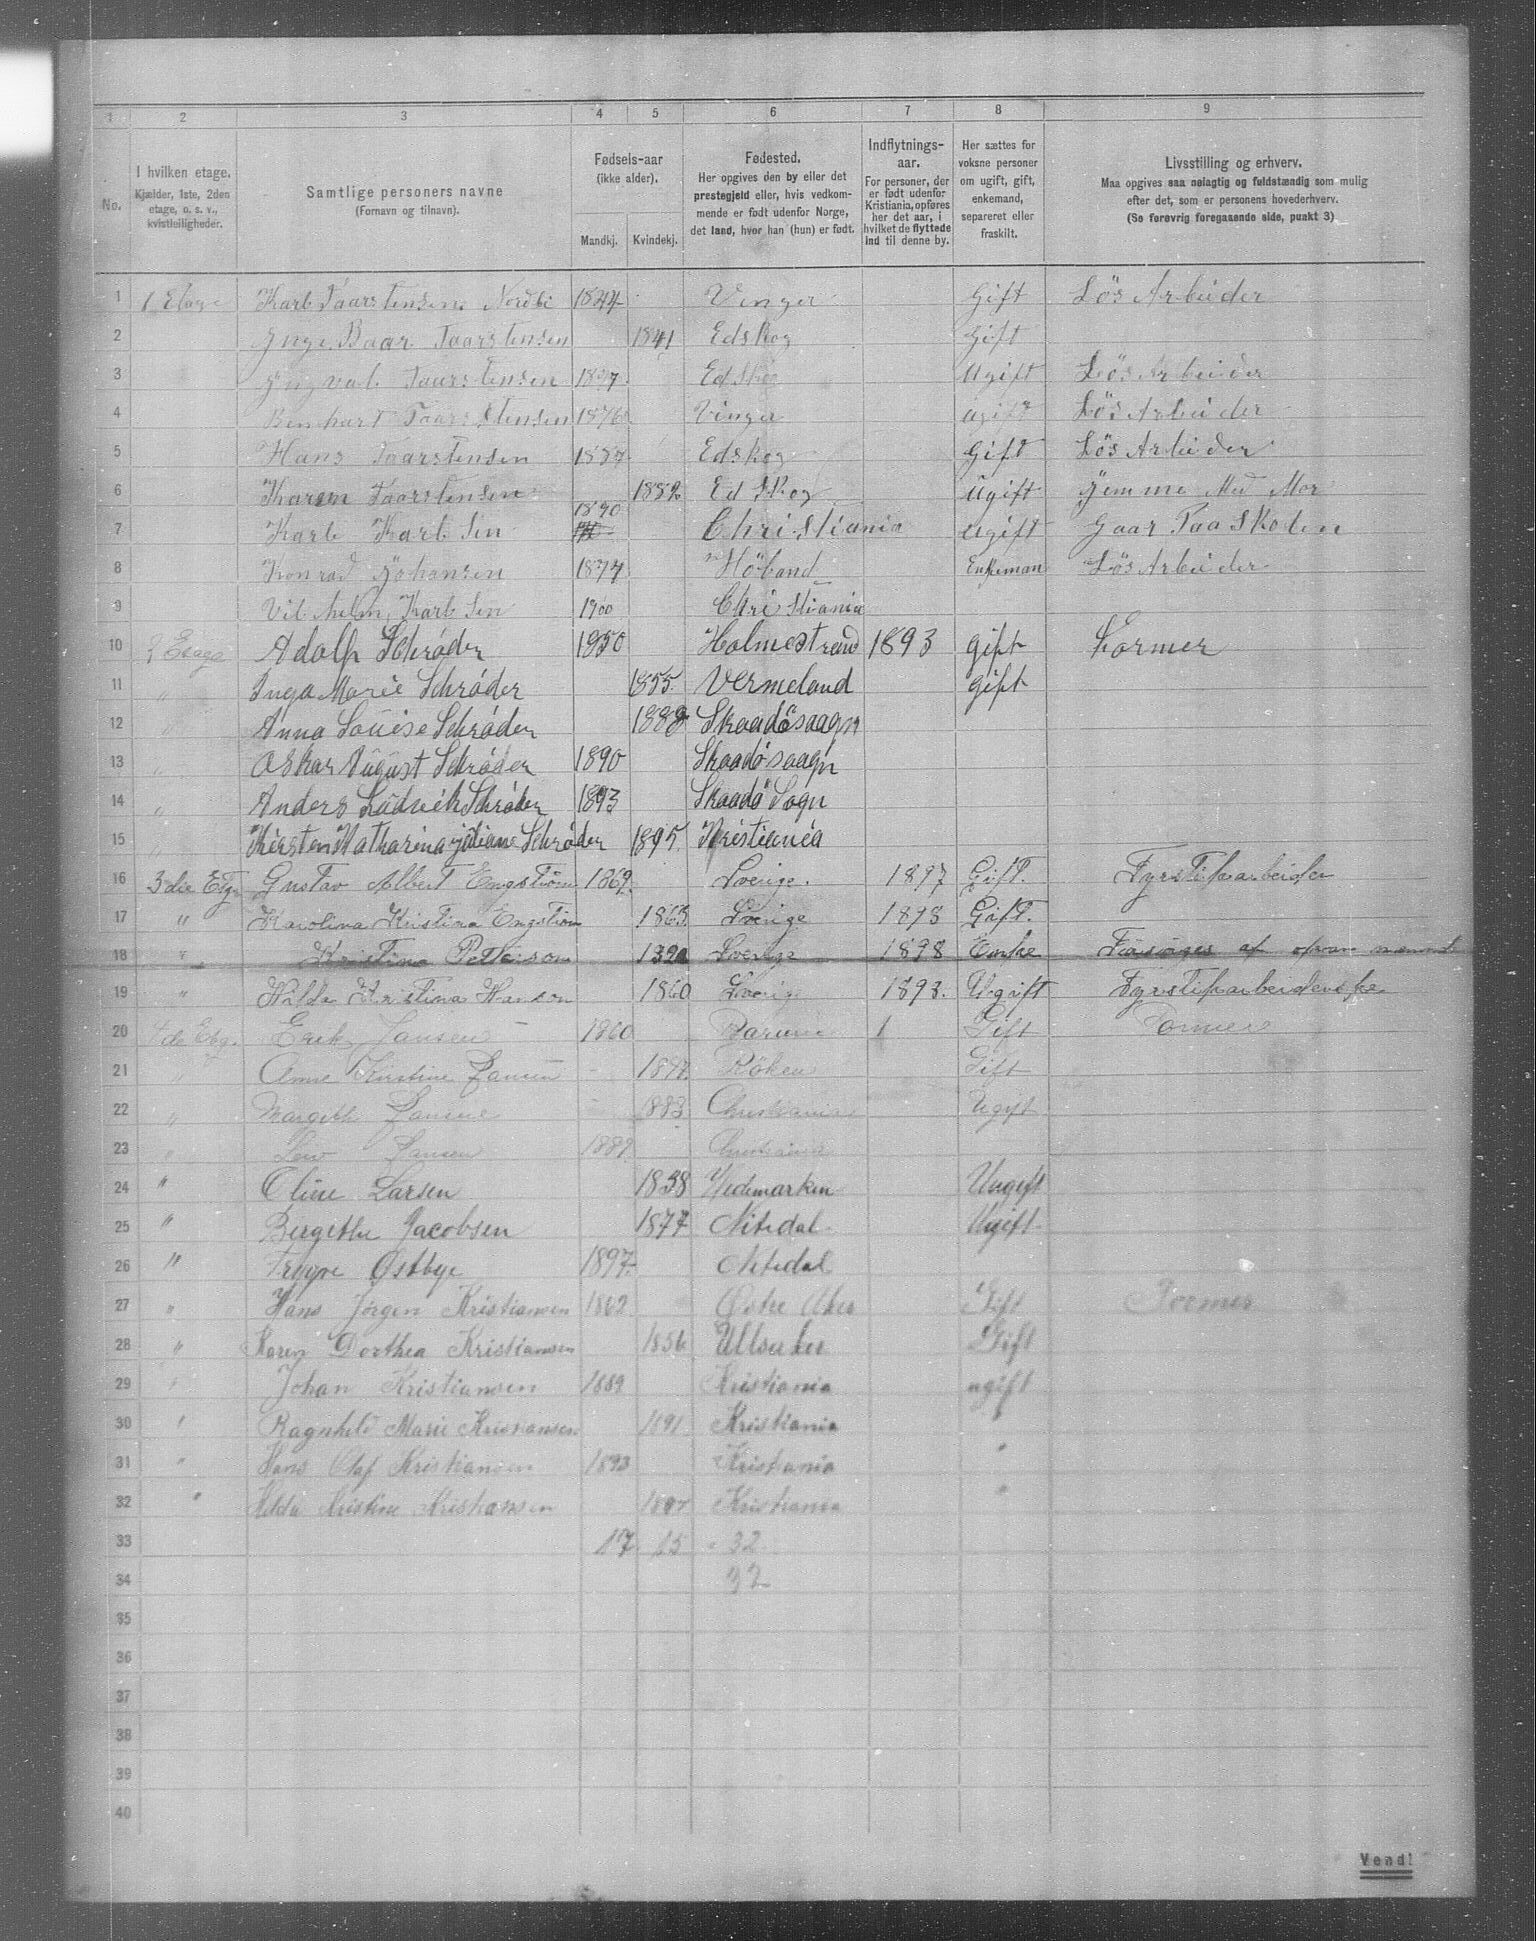 1 2 3 4 5 6 7 8 9
No.
I hvilken etage.
Kjælder, 1ste, 2den
etage, o. s. v.,
kvistleiligheder.
Samtlige personers navne
(Fornavn og tilnavn).
Fødsels-aar
(ikke alder).
Mandkj. Kvindekj.
Fødested.
Her opgives den by eller det
prestegjeld eller, hvis vedkom-
mende er født udenfor Norge,
det land, hvor han (hun) er født.
Indflytnings-
aar.
For personer, der
er født udenfor
Kristiania, opføres
her det aar, i
hvilket de flyttede
ind til denne by.
Her sættes for
voksne personer
om ugift, gift,
enkemand,
separeret eller
fraskilt.
Livsstilling og erhverv.
Maa opgives saa nøiagtig og fuldstændig som mulig
efter det, som er personens hovederhverv.
(Se forøvrig foregaaende side, punkt 3)
1 1 Etage Karl Taarstensen Nordbi 1844 Vinger Gift Lös Arbeider
2 Taarstensen 1841 Edskog Gift
3 Taarstensen Edskog Ugift Lös Arbeider
4 Taarstensen 1876 Vinger ugift Lös Arbeider
5 Hans Taarstensen Edskog Gift Lös Arbeider
6 Karen Taarstensen Ed Skog Ugift Med Mor
7 Karl Karlsen 1890 Christiania ugift Gaar Paa Skolen
8 Konrad Johansen 1874 Enkeman Lös Arbeider
9 Vilhelm Karlsen 1900 Christiania
10 2 Adolph Schrøder 1850 Holmestrand 1893 gift Former
11 " Inga Marie Schrøder 1855 Vermeland gift
12 " Anna Louise Schrøder 1888 Skaadösaagn
13 " Oskar August Schrøder 1890 Skaadösaagn
14 " Anders Ludvik Schrøder 1893 Skaadö Sogn
15 " Kirsten Katharina Schrøder 1895 Kristiania
16 3die Etg Gustav Albert Engström 1869 Sverige. 1897 Gift. Fyrstikarbeider
17 " Karolina Kristina Engström 1863 Sverige 1898 Gift.
18 " Kristina Petterson 1820 Sverige 1898 Enke Forsörges af
19 " Hilda Kristina Hanson 1860 Sverige 1898. Ugift Fyrstikarbeiderske
20 4de Etg. Erik Jansen 1860 Bærum Gift Former
21 " Anne Kristine Jansen Röken Gift
22 " Margith Jansen 1883 Christiania Ugift
23 " Jansen 1889 Christiania
24 " Oline Larsen 1858 Hedemarken Ungift
25 " Bergithe Jacobsen 1877 Nitedal Ugift
26 " Trygve Østbye 1897 Nitedal
27 " Hans Jörgen Kristiansen 1862 Østre Aker Gift Former
28 " Karen Dorthea Kristiansen 1856 Ullsaker Gift
29 " Johan Kristiansen 1889 Kristiania ugift
30 " Ragnhild Marie Kristiansen 1891 Kristiania "
31 " Hans Olaf Kristiansen 1893 Kristiania "
32 " Hilda Kristine Kristiansen 1897 Kristiania "
33 17 15 - 32
34 32
35
36
37
38
39
40
Vend!